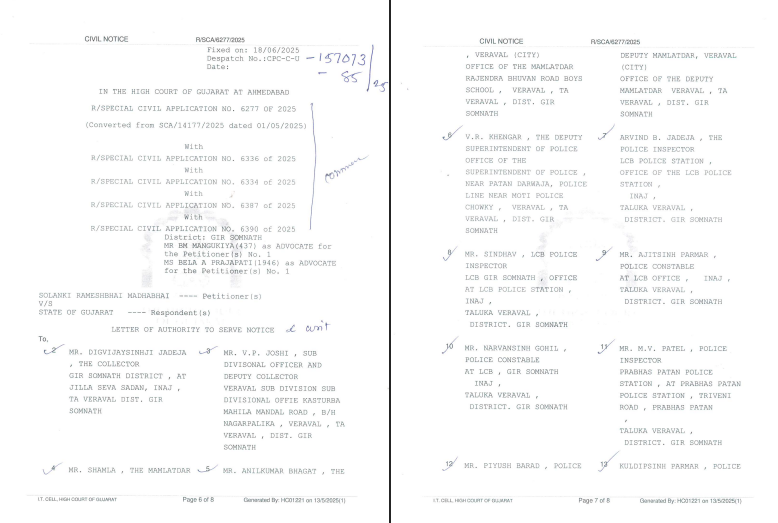 CIVIL NOTICE R/SCA/6277/2025
Fixed on: 18/06/2025
Despatch No.:CPC-C-U -157073
Date: - 85 /25
IN THE HIGH COURT OF GUJARAT AT AHMEDABAD
R/SPECIAL CIVIL APPLICATION NO. 6277 OF 2025
(Converted from SCA/14177/2025 dated 01/05/2025)
With
R/SPECIAL CIVIL APPLICATION NO. 6336 of 2025
With
R/SPECIAL CIVIL APPLICATION NO. 6334 of 2025
With
R/SPECIAL CIVIL APPLICATION NO. 6387 of 2025
With
R/SPECIAL CIVIL APPLICATION NO. 6390 of 2025
District: GIR SOMNATH
MR BM MANGUKIYA(437) as ADVOCATE for
the Petitioner(s) No. 1
MS BELA A PRAJAPATI(1946) as ADVOCATE
for the Petitioner(s) No. 1
SOLANKI RAMESHBHAI MADHABHAI ---- Petitioner(s)
V/S
STATE OF GUJARAT ---- Respondent(s)
LETTER OF AUTHORITY TO SERVE NOTICE
To,
2 MR. DIGVIJAYSINHJI JADEJA
, THE COLLECTOR
GIR SOMNATH DISTRICT , AT
JILLA SEVA SADAN, INAJ ,
TA VERAVAL DIST. GIR
SOMNATH
3 MR. V.P. JOSHI , SUB
DIVISONAL OFFICER AND
DEPUTY COLLECTOR
VERAVAL SUB DIVISION SUB
DIVISIONAL OFFIE KASTURBA
MAHILA MANDAL ROAD , B/H
NAGARPALIKA , VERAVAL , TA
VERAVAL , DIST. GIR
SOMNATH
4 MR. SHAMLA , THE MAMLATDAR
5 MR. ANILKUMAR BHAGAT , THE
I.T. CELL, HIGH COURT OF GUJARAT Page 6 of 8 Generated By: HC01221 on 13/5/2025(1)
CIVIL NOTICE R/SCA/6277/2025
, VERAVAL (CITY)
OFFICE OF THE MAMLATDAR
RAJENDRA BHUVAN ROAD BOYS
SCHOOL , VERAVAL , TA
VERAVAL , DIST. GIR
SOMNATH
DEPUTY MAMLATDAR, VERAVAL
(CITY)
OFFICE OF THE DEPUTY
MAMLATDAR VERAVAL , TA
VERAVAL , DIST. GIR
SOMNATH
6 V.R. KHENGAR , THE DEPUTY
SUPERINTENDENT OF POLICE
OFFICE OF THE
SUPERINTENDENT OF POLICE ,
NEAR PATAN DARWAJA, POLICE
LINE NEAR MOTI POLICE
CHOWKY , VERAVAL , TA
VERAVAL , DIST. GIR
SOMNATH
7 ARVIND B. JADEJA , THE
POLICE INSPECTOR
LCB POLICE STATION ,
OFFICE OF THE LCB POLICE
STATION ,
INAJ ,
TALUKA VERAVAL ,
DISTRICT. GIR SOMNATH
8 MR. SINDHAV , LCB POLICE
INSPECTOR
LCB GIR SOMNATH , OFFICE
AT LCB POLICE STATION ,
INAJ ,
TALUKA VERAVAL ,
DISTRICT. GIR SOMNATH
9 MR. AJITSINH PARMAR ,
POLICE CONSTABLE
AT LCB OFFICE , INAJ ,
TALUKA VERAVAL ,
DISTRICT. GIR SOMNATH
10 MR. NARVANSINH GOHIL ,
POLICE CONSTABLE
AT LCB , GIR SOMNATH
INAJ ,
TALUKA VERAVAL ,
DISTRICT. GIR SOMNATH
11 MR. M.V. PATEL , POLICE
INSPECTOR
PRABHAS PATAN POLICE
STATION , AT PRABHAS PATAN
POLICE STATION , TRIVENI
ROAD , PRABHAS PATAN
,
TALUKA VERAVAL ,
DISTRICT. GIR SOMNATH
12 MR. PIYUSH BARAD , POLICE
13 KULDIPSINH PARMAR , POLICE
I.T. CELL, HIGH COURT OF GUJARAT Page 7 of 8 Generated By: HC01221 on 13/5/2025(1)